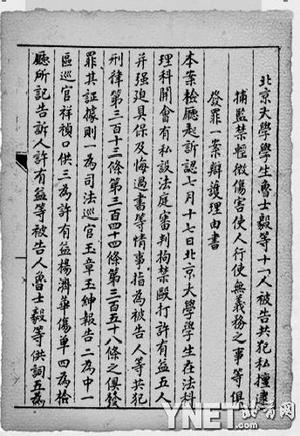 北京大學學生魯士毅等十一人被告共犯私擅逮
捕監禁輕微傷害使人行使無義務之事等俱
發罪一案辯護理由書
本案檢廳起訴認七月十七日北京大學學生在法科
理科開會有私設法庭審判拘禁毆打許有益五人
并强迫具保及悔過書等情事指為被告人等共犯
刑律第三百十三條第三百四十四條第三百五十八條之俱發
罪其証據則一為司法巡官王章玉紳報告二為中一
區巡官祥禎口供三為許有益楊濟華傷單四為檢
廳所記告訴人許有益等被告人魯士毅等供詞五為
YNET.com
北青网